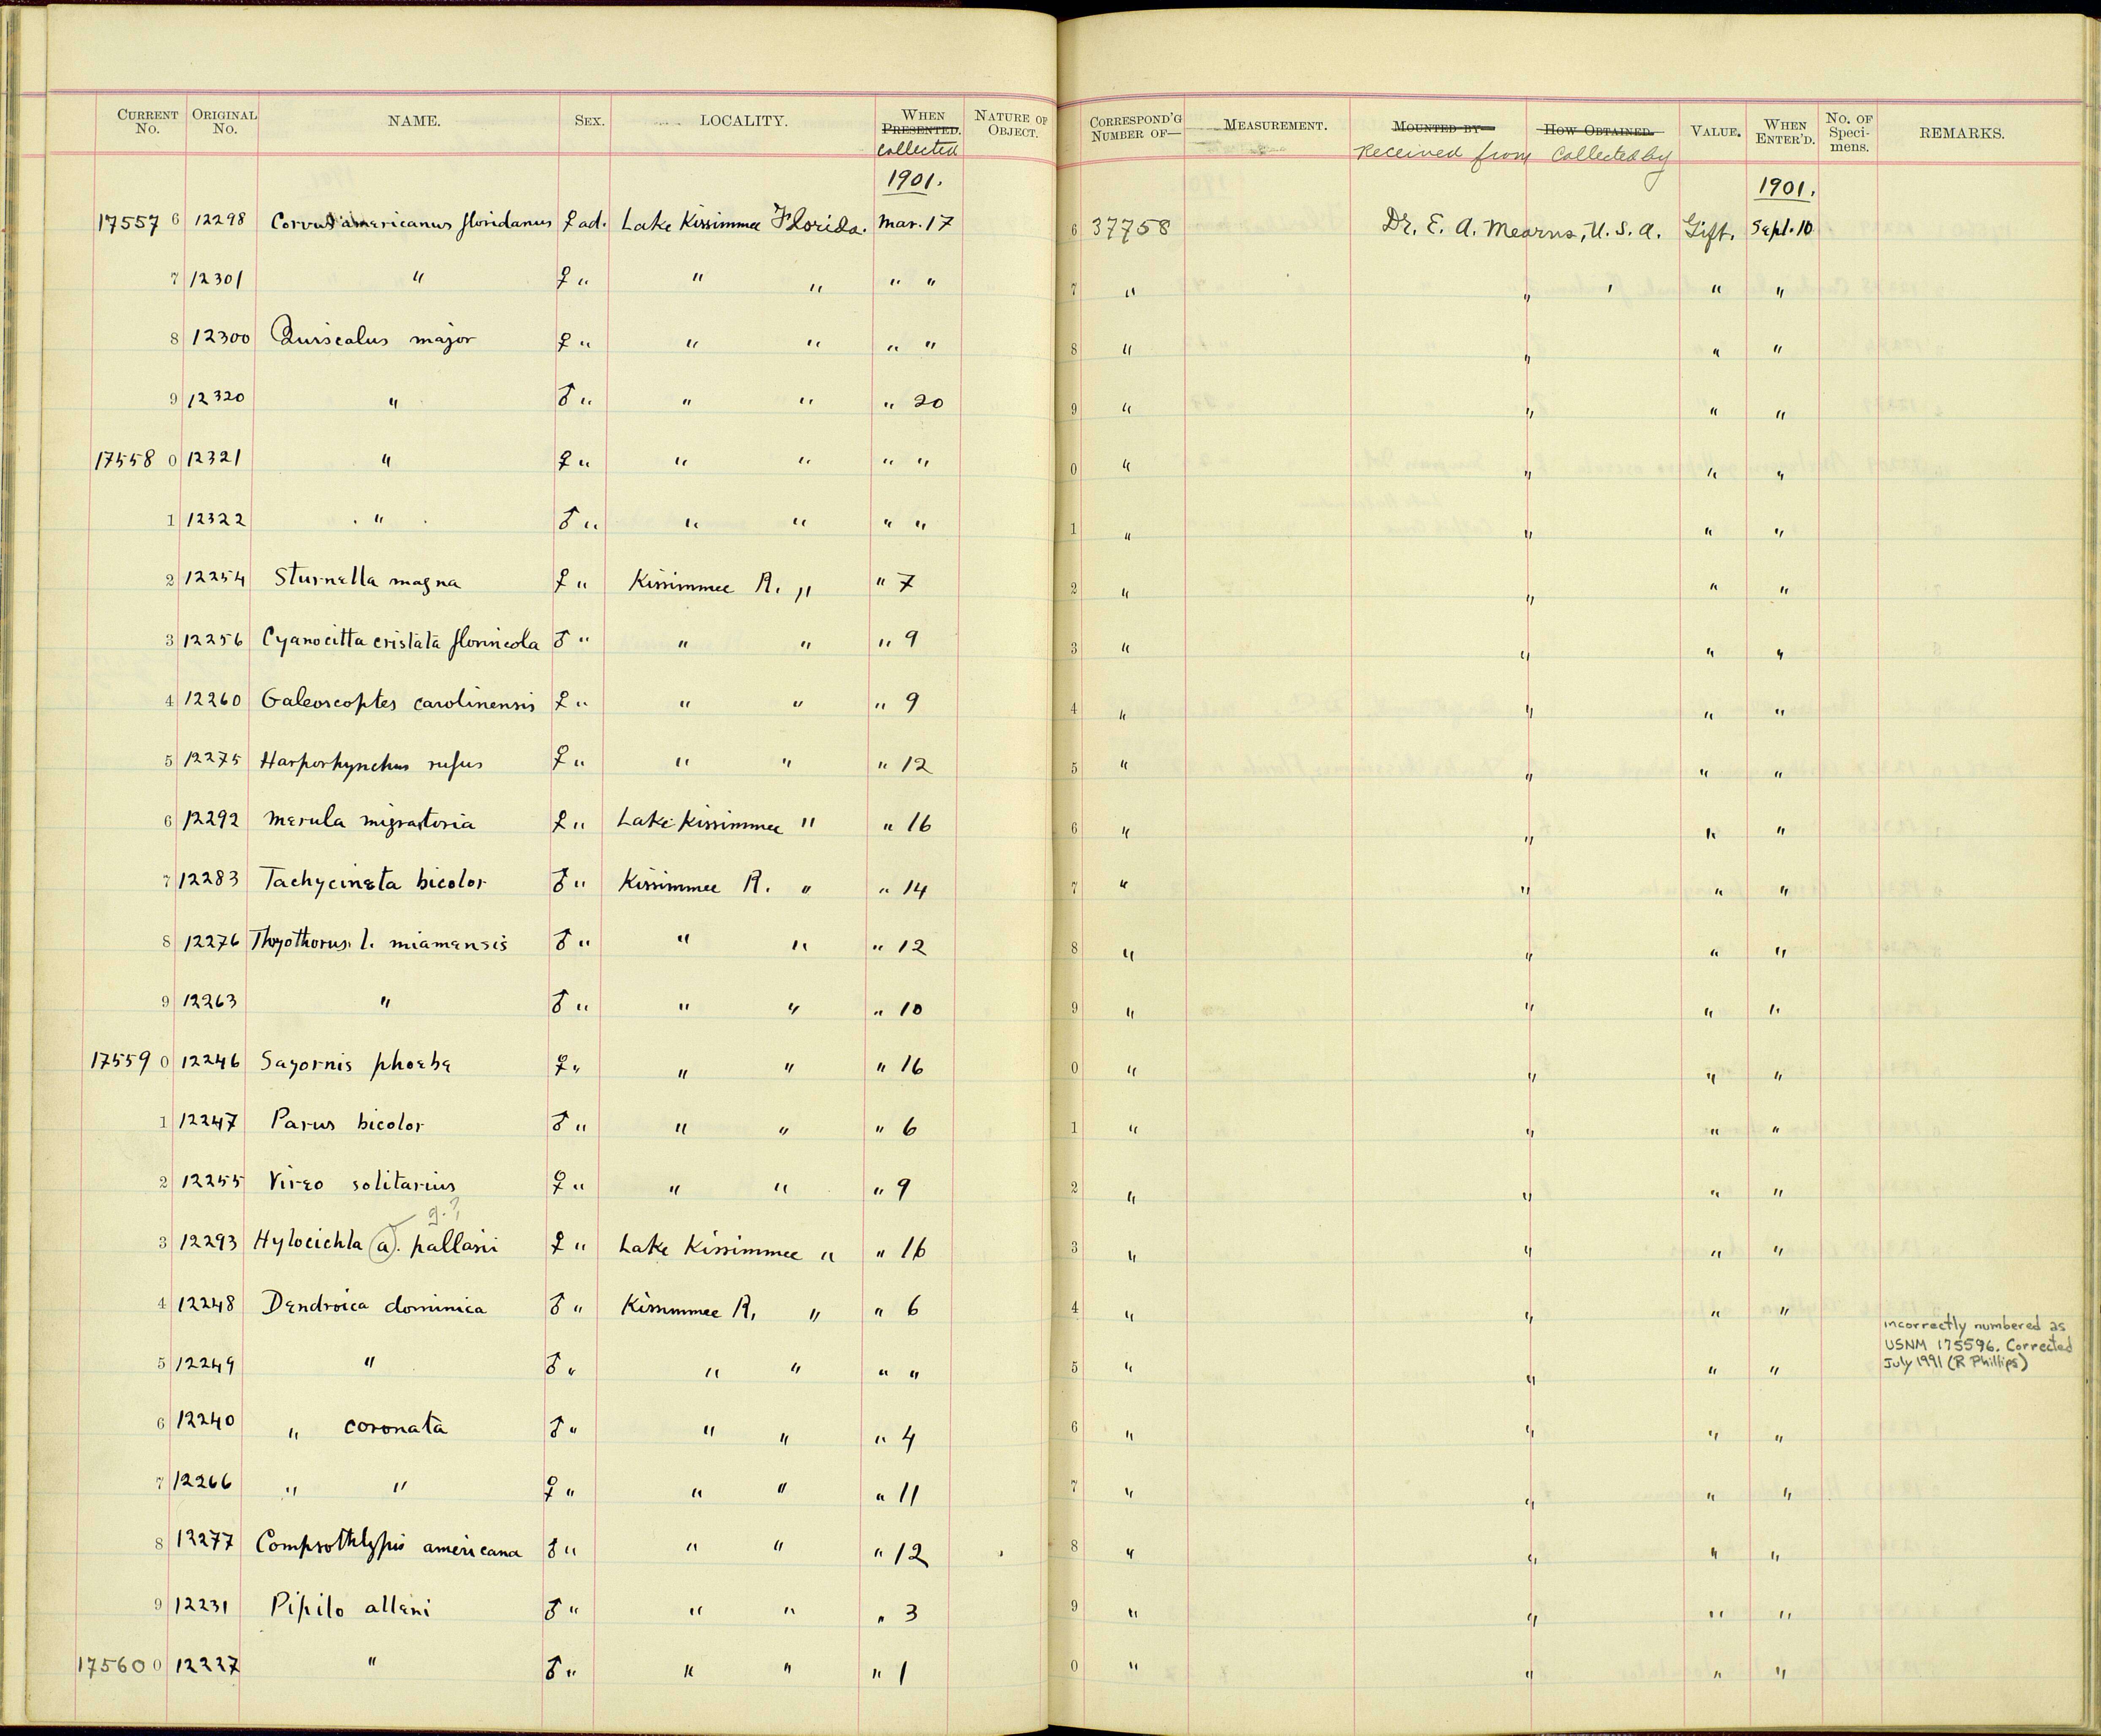 CURRENT No. ORIGINAL No. NAME. SEX. LOCALITY. WHEN PRESENTED. collected NATURE OF OBJECT. CORRESPOND'G NUMBER OF— MEASUREMENT. MOUNTED BY— Received from HOW OBTAINED. Collected by VALUE. WHEN ENTER'D. No. OF Speci-mens. REMARKS.
1901. 1901.
17557 6 12298 Corvus americanus floridanus ♀ ad. Lake Kissimmee Florida. Mar. 17 6 37758 Dr. E. A. Mearns, U. S. A. Gift. Sept. 10
7 12301 " ♀ " " " " " 7 " " ' " "
8 12300 Quiscalus major ♀ " " " " " 8 " " " "
9 12320 " ♂ " " " " 20 9 " " " "
17558 0 12321 " ♀ " " " " " 0 " " " "
1 12322 " ♂ " " " " " 1 " " " "
2 12254 Sturnella magna ♀ " Kissimmee R. " " 7 2 " " " "
3 12256 Cyanocitta cristata florincola ♂ " " " " 9 3 " " " "
4 12260 Galeoscoptes carolinensis ♀ " " " " 9 4 " " " "
5 12275 Harporhynchus rufus ♀ " " " " 12 5 " " " "
6 12292 Merula migratoria ♀ " Lake Kissimmee " " 16 6 " " " "
7 12283 Tachycineta bicolor ♂ " Kissimmee R. " " 14 7 " " " "
8 12276 Thryothorus l. miamensis ♂ " " " " 12 8 " " " "
9 12263 " ♂ " " " " 10 9 " " " "
17559 0 12246 Sayornis phoebe ♀ " " " " 16 0 " " " "
1 12247 Parus bicolor ♂ " " " " 6 1 " " " "
2 12255 Vireo solitarius ♀ " " " " 9 2 " " " "
g.?
3 12293 Hylocichla a. pallasii ♀ " Lake Kissimmee " " 16 3 " " " "
4 12248 Dendroica dominica ♂ " Kissimmee R. " " 6 4 " " " "
incorrectly numbered as
USNM 175596. Corrected
July 1991 (R Phillips)
5 12249 " ♂ " " " " " 5 " " " "
6 12240 " coronata ♂ " " " " 4 6 " " " "
7 12266 " " ♀ " " " " 11 7 " " " "
8 12277 Compsothlypis americana ♂ " " " " 12 8 " " " "
9 12231 Pipilo alleni ♂ " " " " 3 9 " " " "
17560 0 12227 " ♂ " " " " 1 0 " " " "